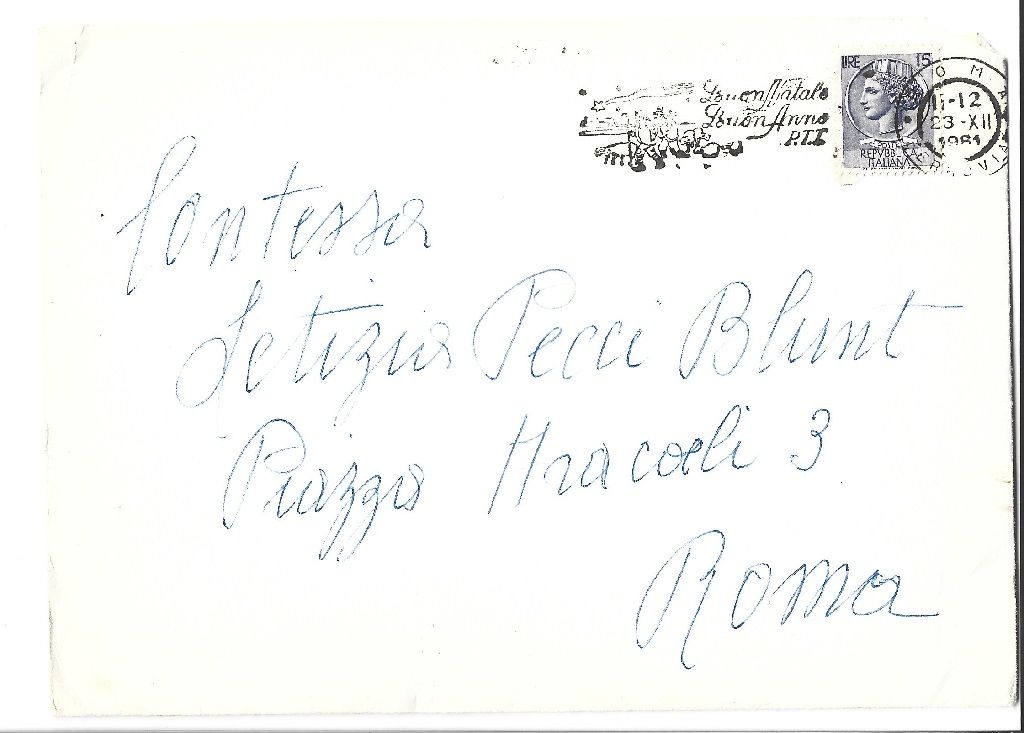 Buon Natale
Buon Anno
P.T.T.
LIRE 15
POSTE
REPVBBLICA
ITALIANA
ROMA
11-12
23-XII
1961
Contessa
Letizia Pecci Blunt
Piazza Aracoeli 3
Roma